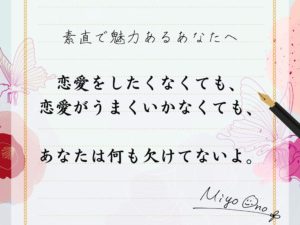 素直で魅力あるあなたへ
恋愛をしたくなくても、
恋愛がうまくいかなくても、
あなたは何も欠けてないよ。
Miyo Ono